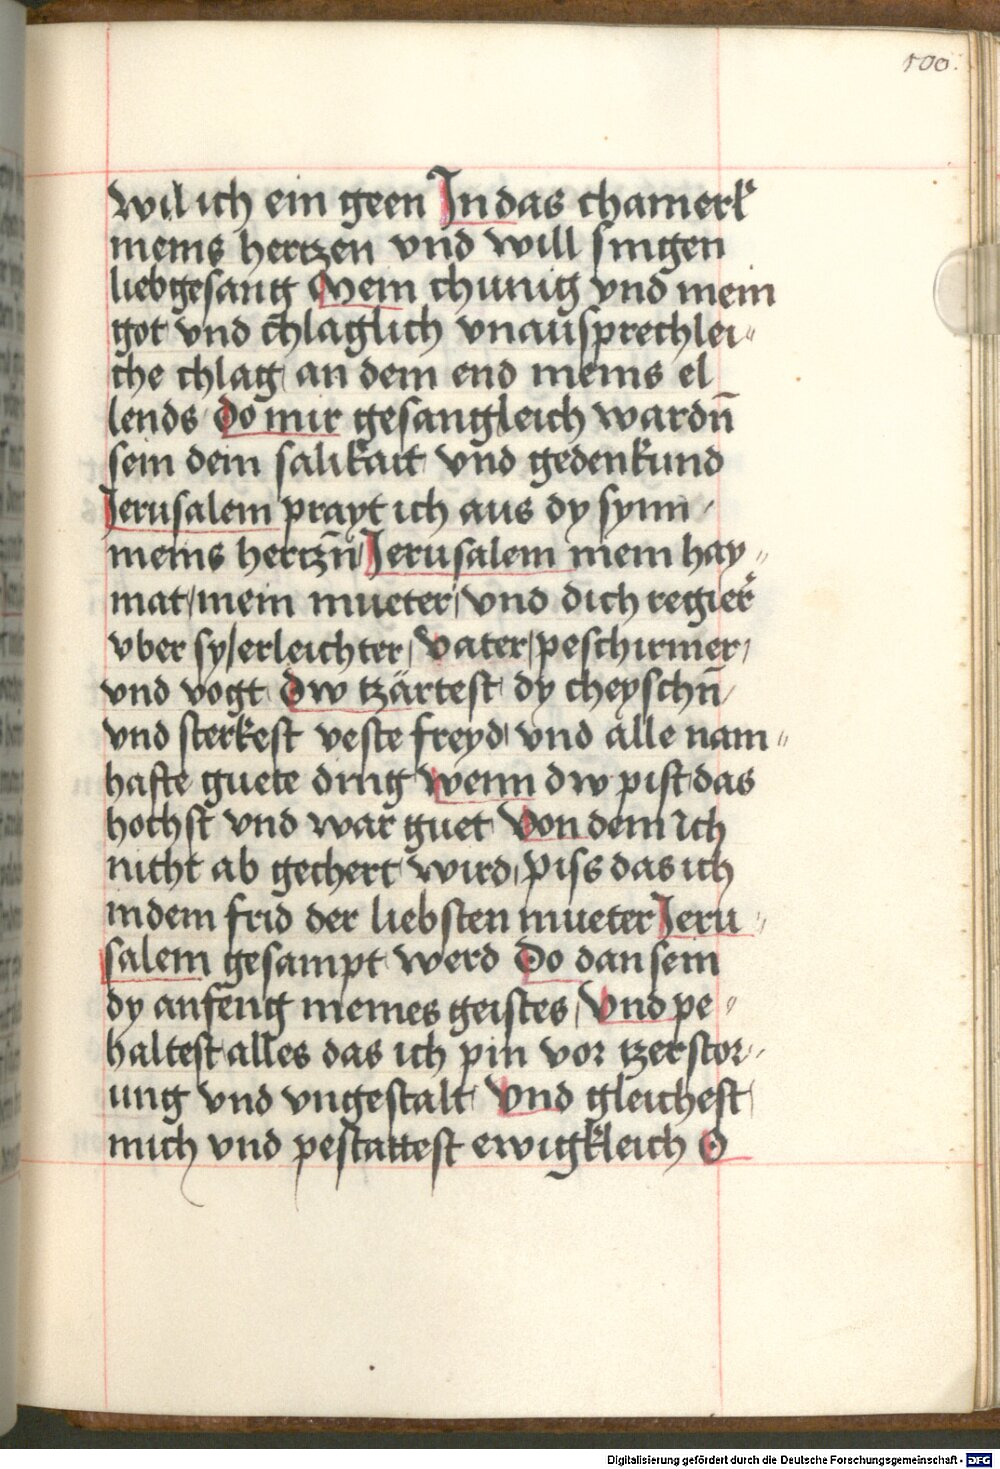 100.
wil ich ein geen In das chamerl̕
meins hertzen vnd will singen
liebgesang Mein chunig vnd mein
got vnd chlaglich vnausprechlei„
che chlag an dem end meins el
lends Do mir gesangkleich wardn̄
sein dein salikait vnd gedenkund
Jerusalem prayt ich aus dy synn /
meins hertzn̄ Jerusalem mein hay„
mat / mein mueter / vnd dich regier̕
vber sy / erleichter / Vater / peschirmer /
vnd vogt Dw tzärtest dy cheyschn̄ /
vnd sterkest veste freyd / vnd alle nam„
hafte guete ding wenn dw pist das
hochst vnd war guet Von dem Ich
nicht ab gechert wird / Piss das ich
indem frid der liebsten mueter Jeru„
salem gesampt werd Do dan sein
dy anfeng meines geistes / Vnd pe„
haltest alles das ich pin vor tzerstor„
ung vnd vngestalt Vnd gleichest
mich vnd pestattest ewigkleich O
Digitalisierung gefördert durch die Deutsche Forschungsgemeinschaft - DFG